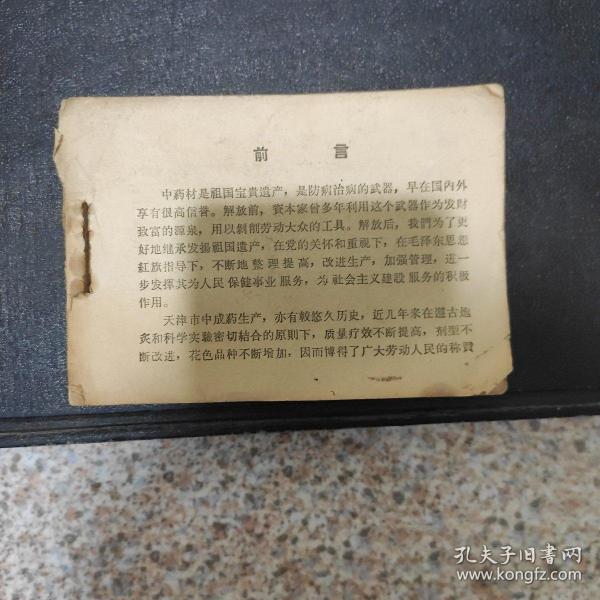 前言
中葯材是祖国宝貴遺产，是防病治病的武器，早在国内外
享有很高信誉。解放前，資本家曾多年利用这个武器作为发财
致富的源泉，用以剝削劳动大众的工具。解放后，我們为了更
好地继承发揚祖国遺产，在党的关怀和重視下，在毛泽东思想
紅旗指导下，不断地整理提高，改进生产，加强管理，进一
步发揮其为人民保健事业服务，为社会主义建設服务的积极
作用。
天津市中成葯生产，亦有較悠久历史，近几年来在遵古炮
炙和科学实驗密切結合的原則下，质量疗效不断提高，剂型不
断改进，花色品种不断增加，因而博得了广大劳动人民的称贊
孔夫子旧書网
www.kongfz.com